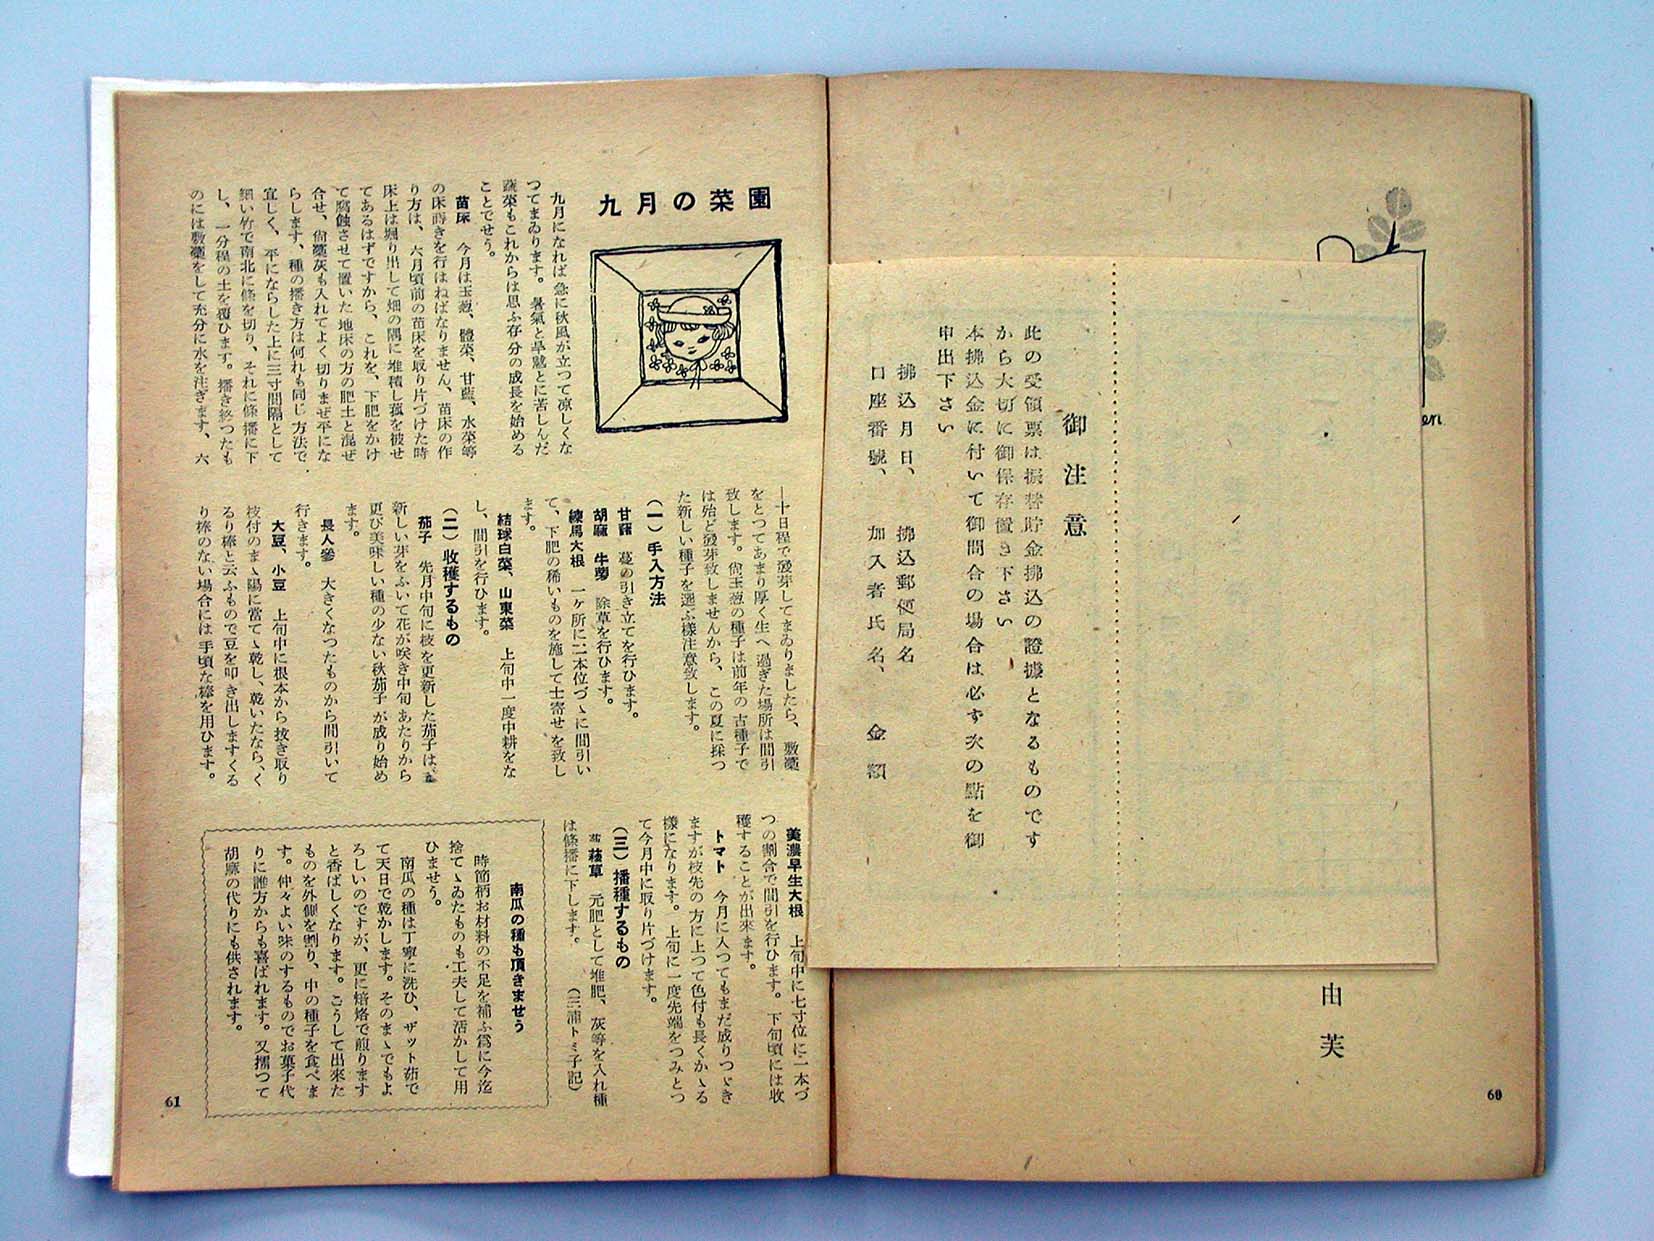 en
由芙
60
御注意
此の受領票は振替貯金拂込の證據となるものです
から大切に御保存置き下さい
本拂込金に付いて御問合の場合は必ず次の點を御
申出下さい
拂込月日、 拂込郵便局名
口座番號、 加入者氏名、 金額
九月の菜園
九月になれば急に秋風が立つて凉しくな
つてまゐります。暑氣と旱魃とに苦しんだ
蔬菜もこれからは思ふ存分の成長を始める
ことでせう。
苗床 今月は玉葱、體菜、甘藍、水菜等
の床蒔きを行はねばなりません、苗床の作
り方は、六月頃前の苗床を取り片づけた時
床上は堀り出して畑の隅に堆積し菰を被せ
てあるはずですから、これを、下肥をかけ
て腐蝕させて置いた地床の方の肥土と混ぜ
合せ、尙藁灰も入れてよく切りまぜ平にな
らします、種の播き方は何れも同じ方法で
宜しく、平にならした上に三寸間隔として
細い竹で南北に條を切り、それに條播に下
し、一分程の土を覆ひます。播き終つたも
のには敷藁をして充分に水を注ぎます、六
―十日程で發芽してまゐりましたら、敷藁
をとつてあまり厚く生へ過ぎた場所は間引
致します。尙玉葱の種子は前年の古種子で
は殆ど發芽致しませんから、この夏に採つ
た新しい種子を選ぶ樣注意致します。
(一)手入方法
甘藷 蔓の引き立てを行ひます。
胡麻 牛蒡 除草を行ひます。
練馬大根 一ケ所に二本位づゝに間引い
て、下肥の稀いものを施して土寄せを致し
ます。
結球白菜、山東菜 上旬中一度中耕をな
し、間引を行ひます。
(二)收穫するもの
茄子 先月中旬に枝を更新した茄子は、
新しい芽をふいて花が咲き中旬あたりから
更び美味しい種の少ない秋茄子が成り始め
ます。
長人參 大きくなつたものから間引いて
行きます。
大豆、小豆 上旬中に根本から拔き取り
枝付のまゝ陽に當てゝ乾し、乾いたなら、く
るり棒と云ふもので豆を叩き出しますくる
り棒のない場合には手頃な棒を用ひます。
美濃早生大根 上旬中に七寸位に二本づ
つの割合で間引を行ひます。下旬頃には收
穫することが出來ます。
トマト 今月に入つてもまだ成りつゞき
ますが枝先の方に上つて色付も長くかゝる
樣になります。上旬に一度先端をつみとつ
て今月中に取り片づけます。
(三)播種するもの
菠薐草 元肥として堆肥、灰等を入れ種
は條播に下します。 (三浦トミ子記)
南瓜の種も頂きませう
時節柄お材料の不足を補ふ爲に今迄
捨てゝゐたものも工夫して活かして用
ひませう。
南瓜の種は丁寧に洗ひ、ザット茹で
て天日で乾かします。そのまゝでもよ
ろしいのですが、更に焙烙で煎ります
と香ばしくなります。こうして出來た
ものを外側を割り、中の種子を食べま
す。仲々よい味のするものでお菓子代
りに誰方からも喜ばれます。又擂つて
胡麻の代りにも供されます。
61